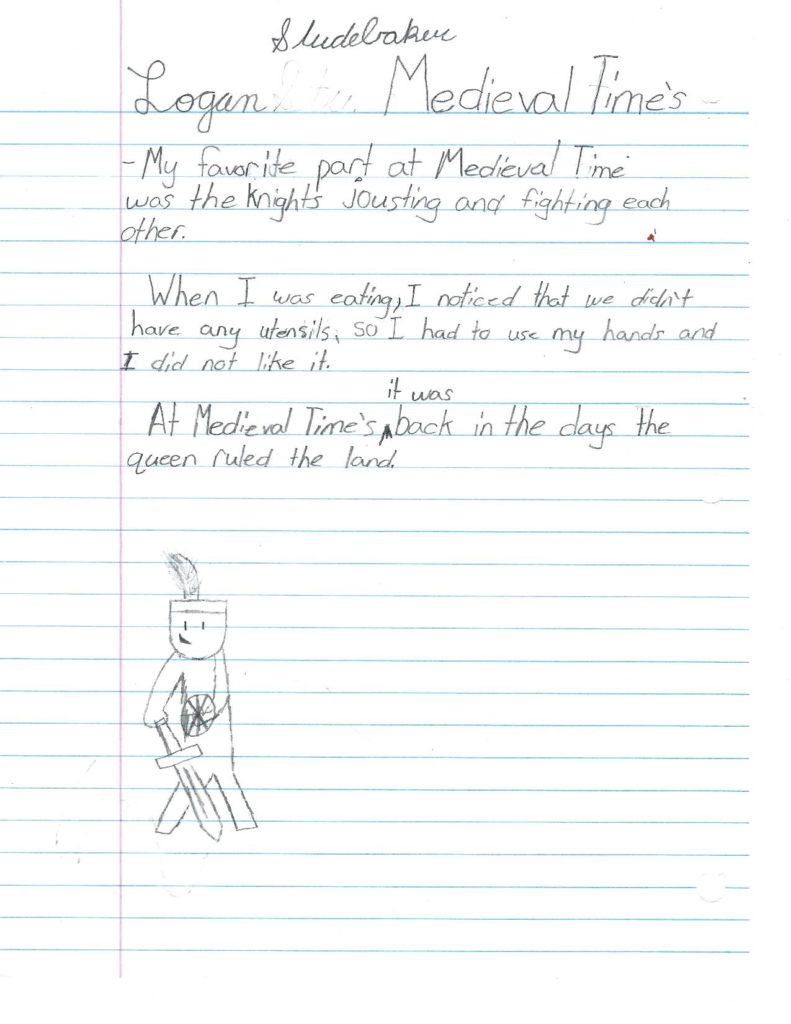 Studebaker
Logan Stu Medieval Time's
- My favorite part at Medieval Time
was the Knights jousting and fighting each
other.
When I was eating, I noticed that we didn't
have any utensils, so I had to use my hands and
I did not like it.
it was
At Medieval Time's back in the days the
queen ruled the land.